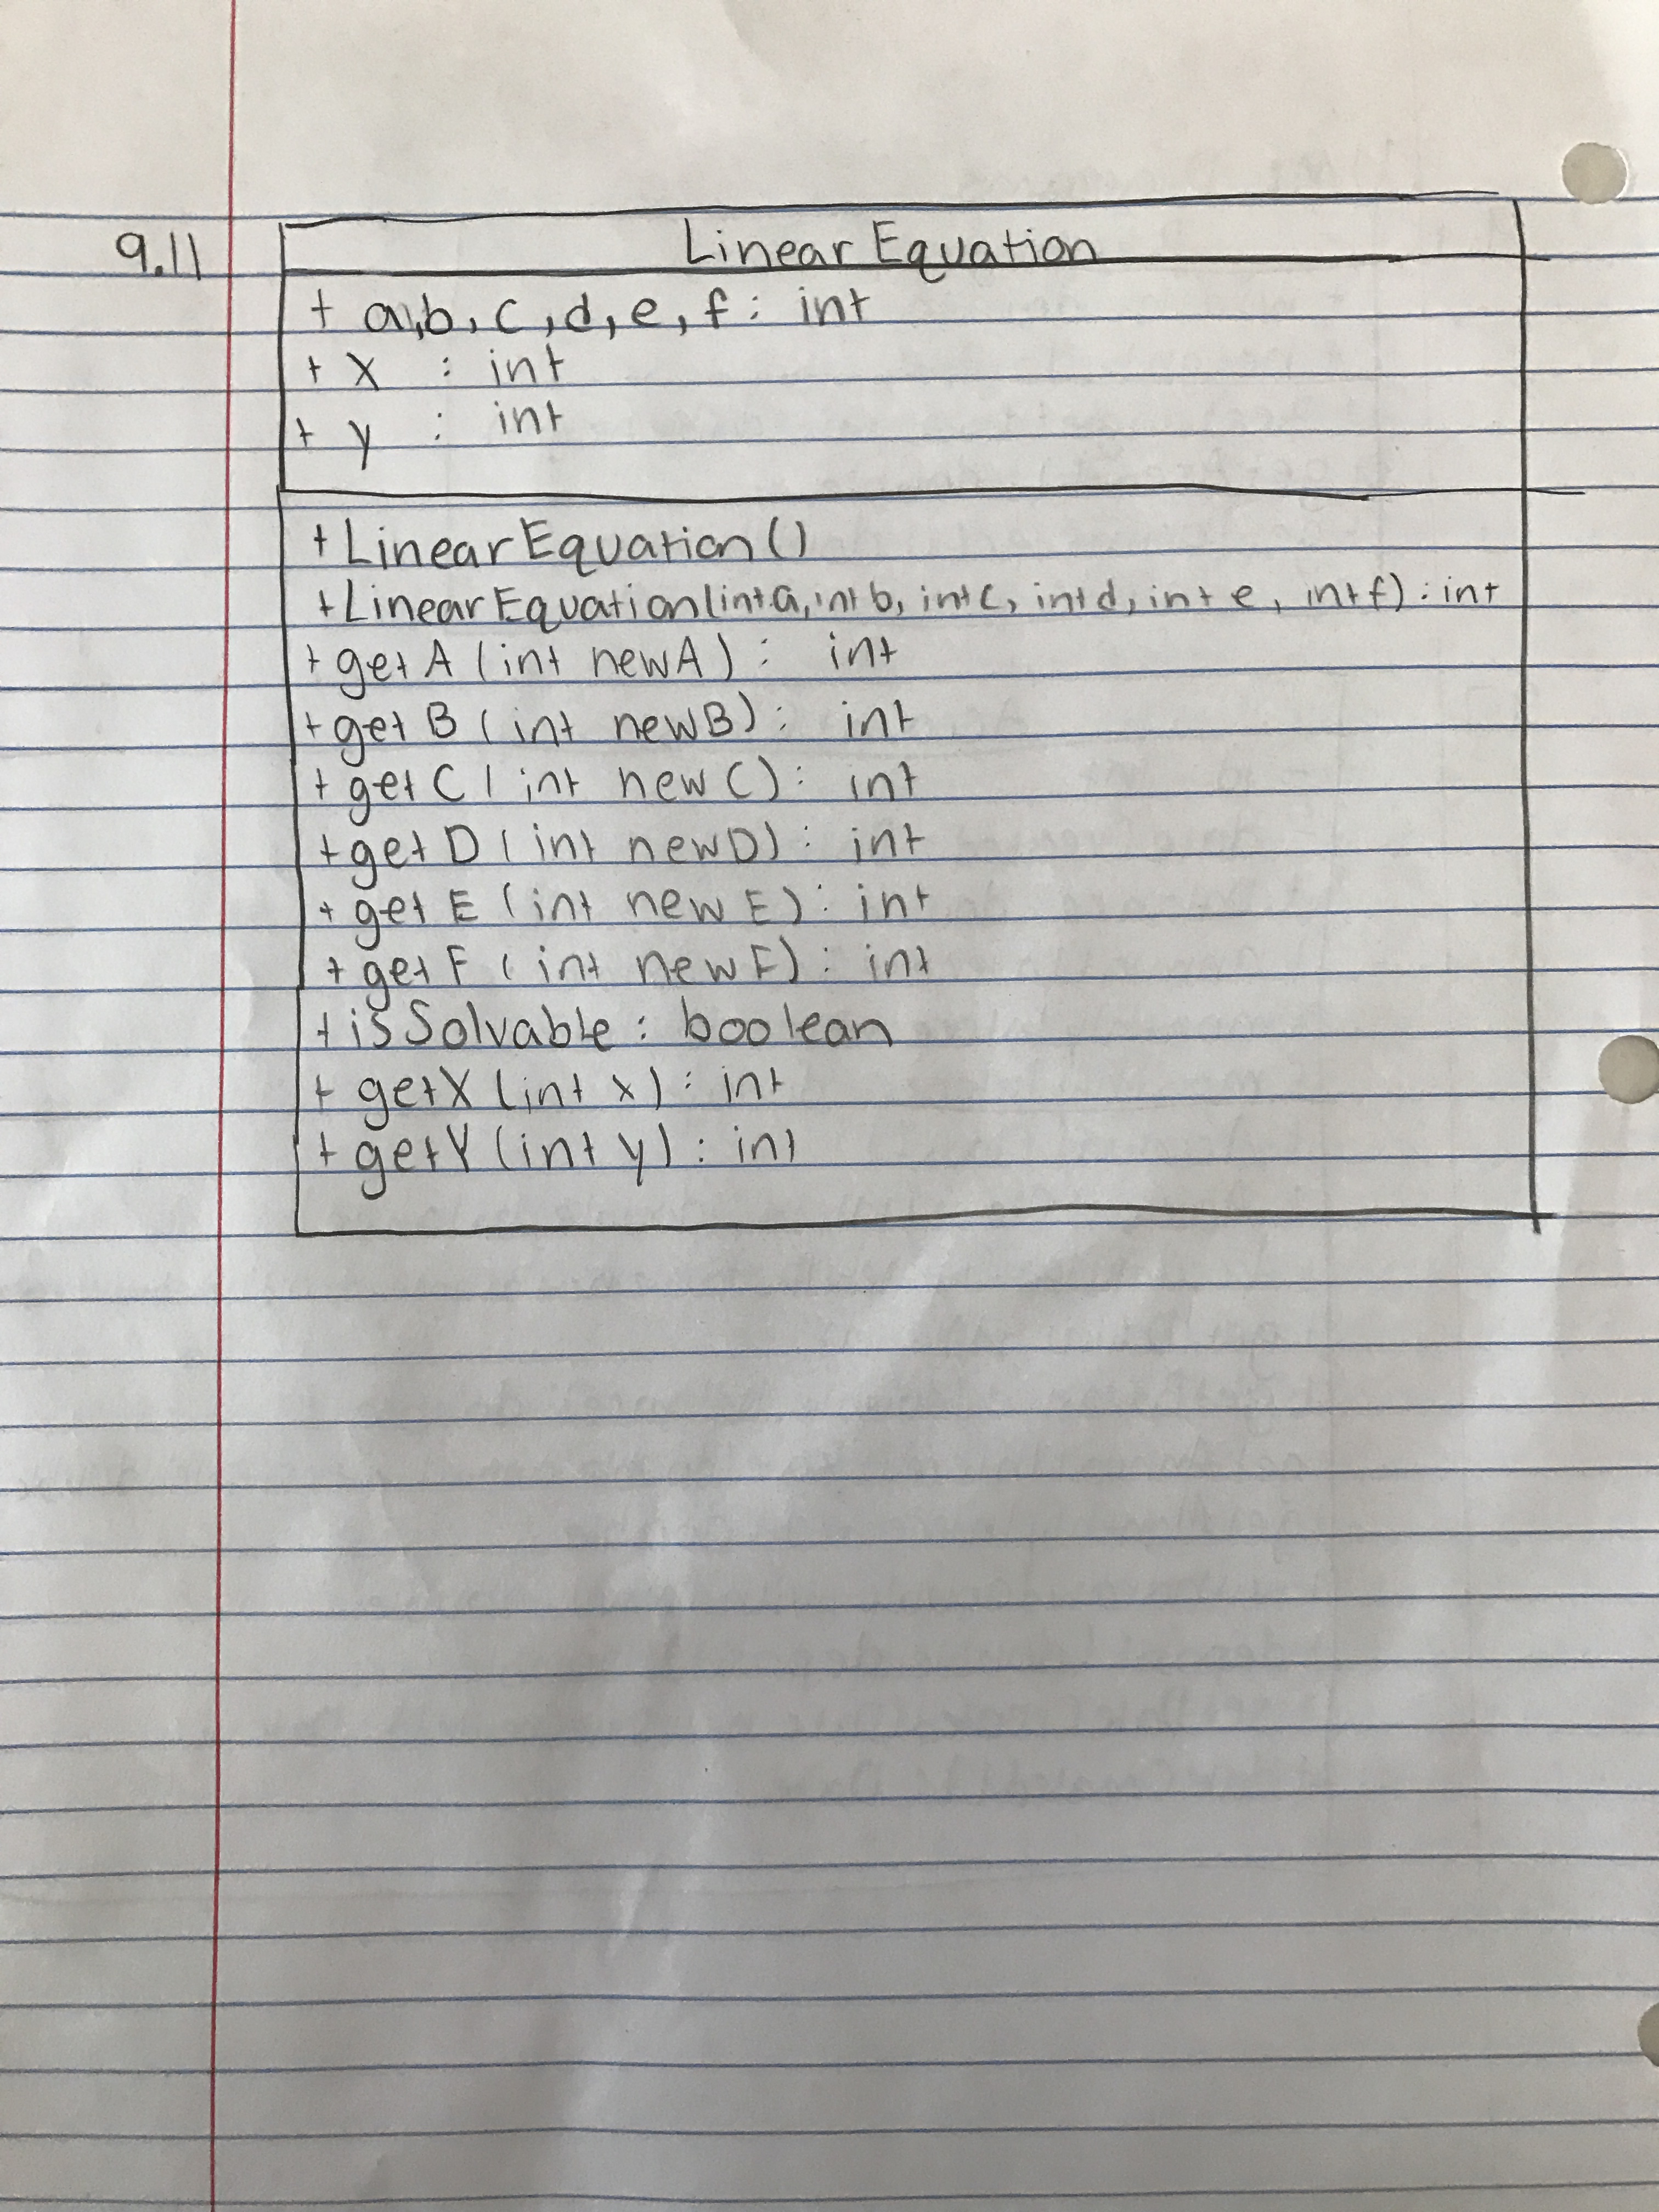 9.11
Linear Equation
+ a,b,c,d,e,f: int
+ x : int
+ y : int
+LinearEquation()
+LinearEquation(int a, int b, int c, int d, int e, int f): int
+ getA (int newA): int
+ getB (int newB): int
+ getC (int newC): int
+ getD (int newD): int
+ getE (int newE): int
+ getF (int newF): int
+isSolvable: boolean
+ getX (int x): int
+ getY (int y): int